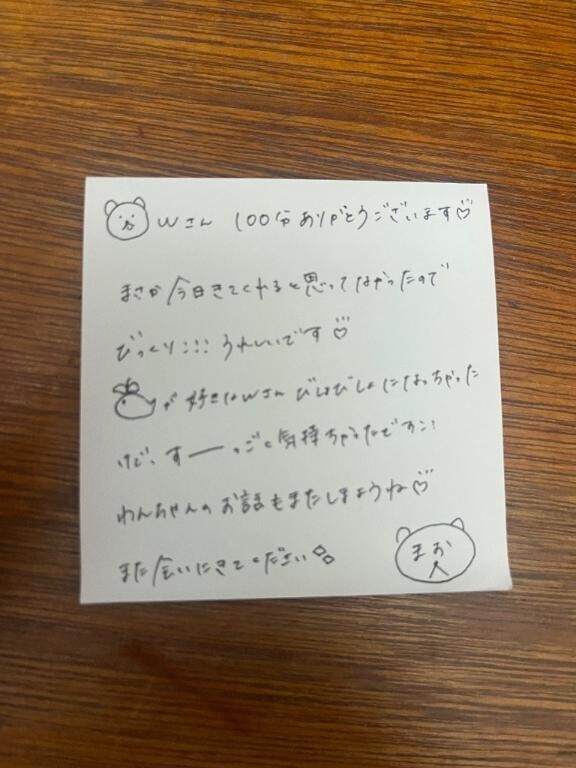 Wさん 100分ありがとうございます♡
まさか今日きてくれると思ってなかったので
びっくり!!! うれしいです♡
が好きなWさん びしょびしょになっちゃった
けど、すーーっごく気持ちかったですン!
わんちゃんのお話もまたしましょうね♡
また会いにきてください
まお